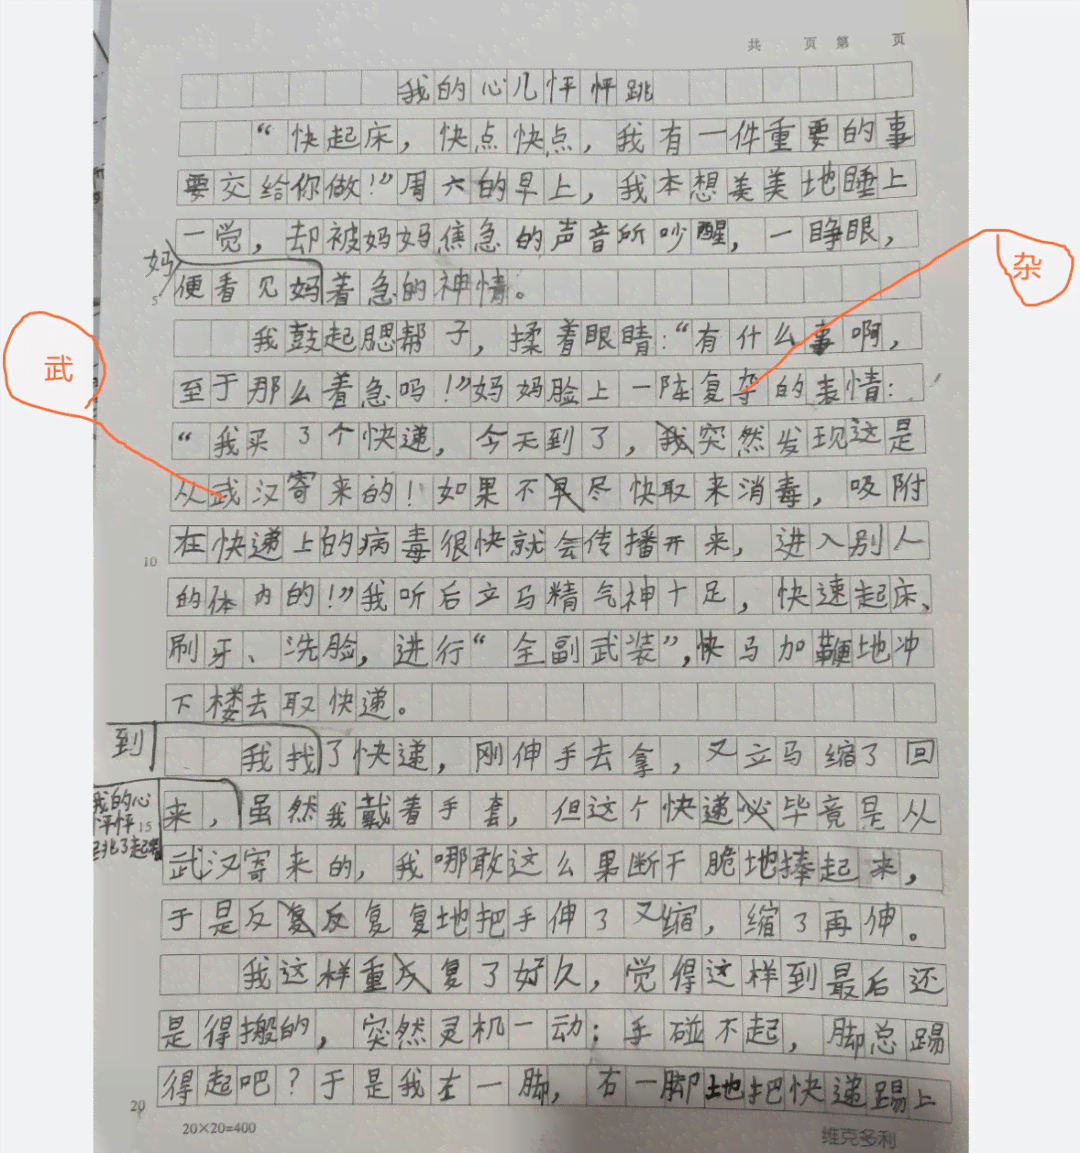 共 页 第 页
我的心儿怦怦跳
“快起床，快点快点，我有一件重要的事
要交给你做！”周六的早上，我本想美美地睡上
一觉，却被妈妈焦急的声音所吵醒，一睁眼，
妈
便看见妈着急的神情。
5
杂
我鼓起腮帮子，揉着眼睛：“有什么事啊，
武
至于那么着急吗！”妈妈脸上一阵复杂的表情：
“我买了个快递，今天到了，我突然发现这是
从武汉寄来的！如果不早尽快取来消毒，吸附
在快递上的病毒很快就会传播开来，进入别人
10
的体内的！”我听后立马精气神十足，快速起床、
刷牙、洗脸，进行“全副武装”，快马加鞭地冲
下楼去取快递。
到
我找了快递，刚伸手去拿，又立马缩了回
我的心
怦怦
跳了起来
来，虽然我戴着手套，但这个快递必毕竟是从
15
武汉寄来的，我哪敢这么果断干脆地捧起来，
于是反复反复复地把手伸了又缩，缩了再伸。
我这样重反复了好久，觉得这样到最后还
是得搬的，突然灵机一动：手碰不起，脚总踢
得起吧？于是我左一脚，右一脚地把快递踢上
20
20×20=400
维克多利